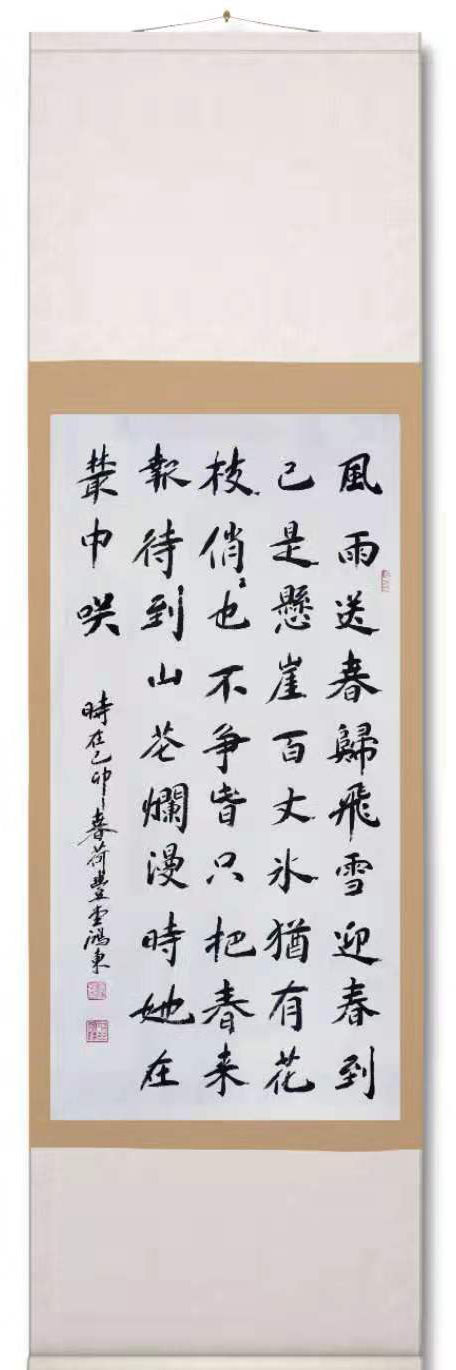 風雨送春歸飛雪迎春到
已是懸崖百丈氷猶有花
枝俏〻也不争旾只把春来
報待到山花爛漫時她在
叢中咲
時在己卯春荷豊堂鴻東